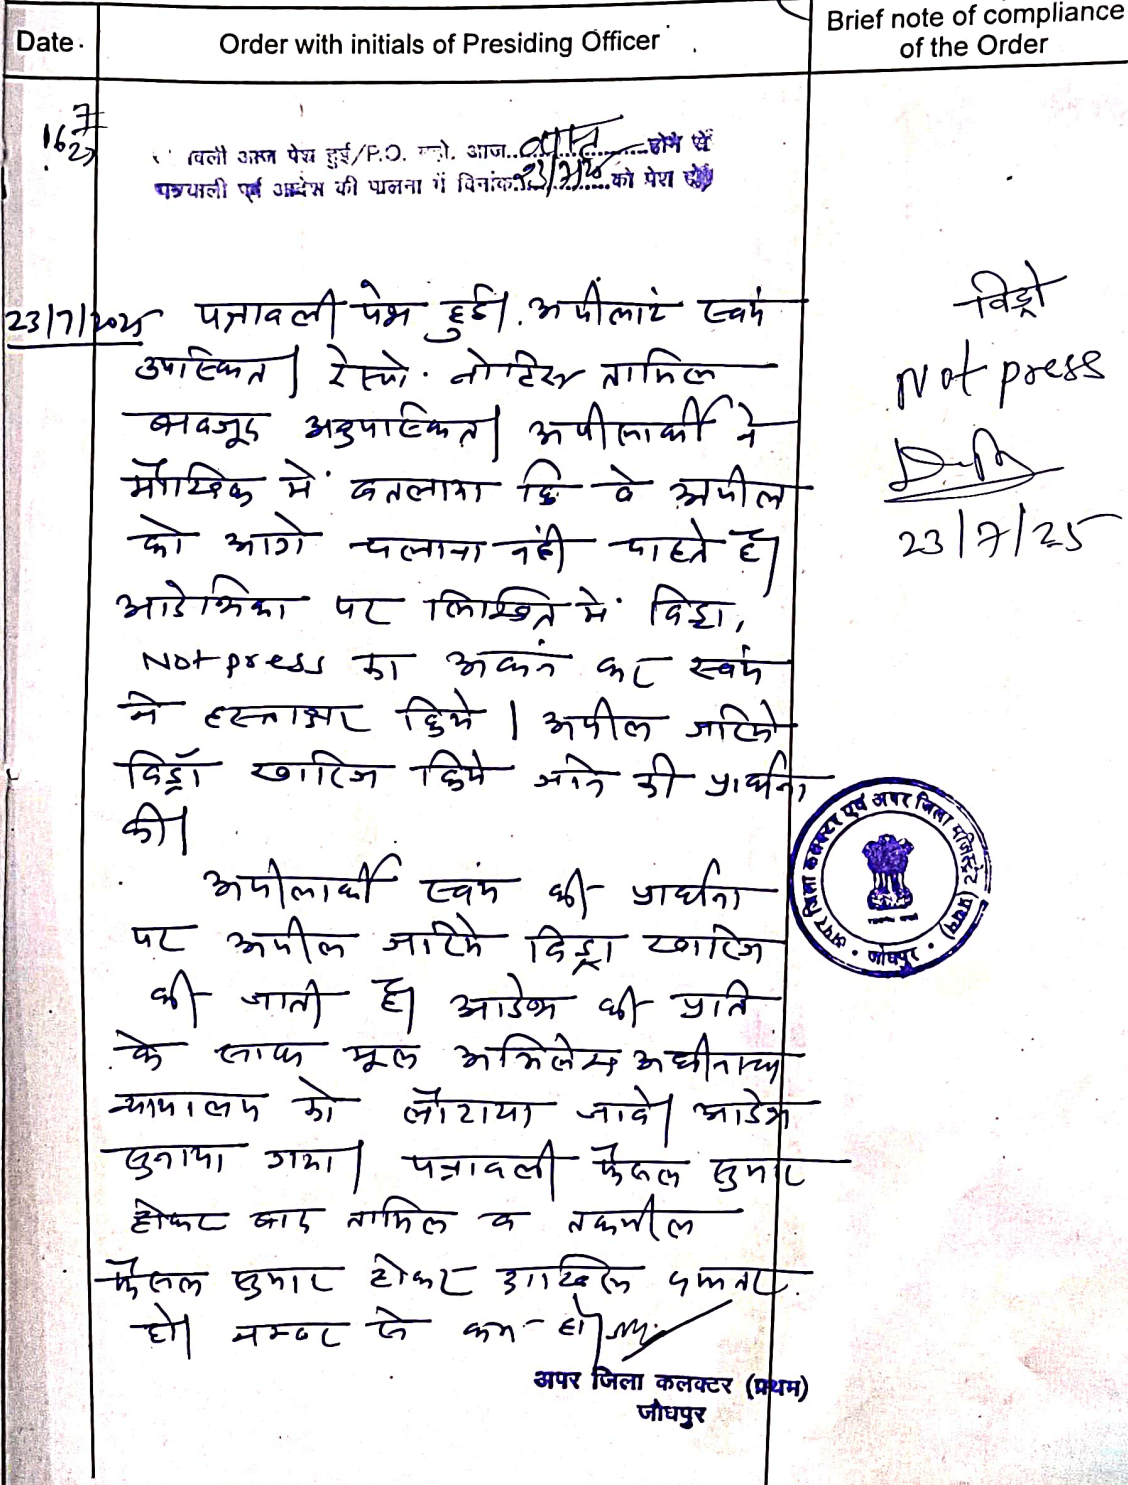 Date.
Order with initials of Presiding Officer
Brief note of compliance
of the Order
16/7
पत्रावली आज पेश हुई/P.O. महो. आज........होने से
पत्रावली पूर्व आदेश की पालना में दिनांक 23/7/25 को पेश हो
23/7/2025 पत्रावली पेश हुई। अपीलांट स्वयं
उपस्थित। रेस्पो. नोटिस तामिल
बावजूद अनुपस्थित। अपीलार्थी ने
मौखिक में बतलाया कि वे अपील
को आगे चलाना नहीं चाहते है।
आदेशिका पर लिखित में विड्रा,
Not press का अंकन कर स्वयं
ने हस्ताक्षर किये। अपील जरिये
विड्रॉ खारिज किये जाने की प्रार्थना
की।
अपीलार्थी स्वयं की प्रार्थना
पर अपील जरिये विड्रा खारिज
की जाती है। आदेश की प्रति
के साथ मूल अभिलेख अधीनस्थ
न्यायालय को लौटाया जावे। आदेश
सुनाया गया। पत्रावली फैसल सुमार
होकर बाद तामिल व तकमील
फैसल सुमार होकर दाखिल दफ्तर
हो। नम्बर से कम हो।
अपर जिला कलक्टर (प्रथम)
जोधपुर
विड्रो
Not press
23/7/25
अपर जिला कलक्टर एवं अपर जिला मजिस्ट्रेट (प्रथम)
जोधपुर